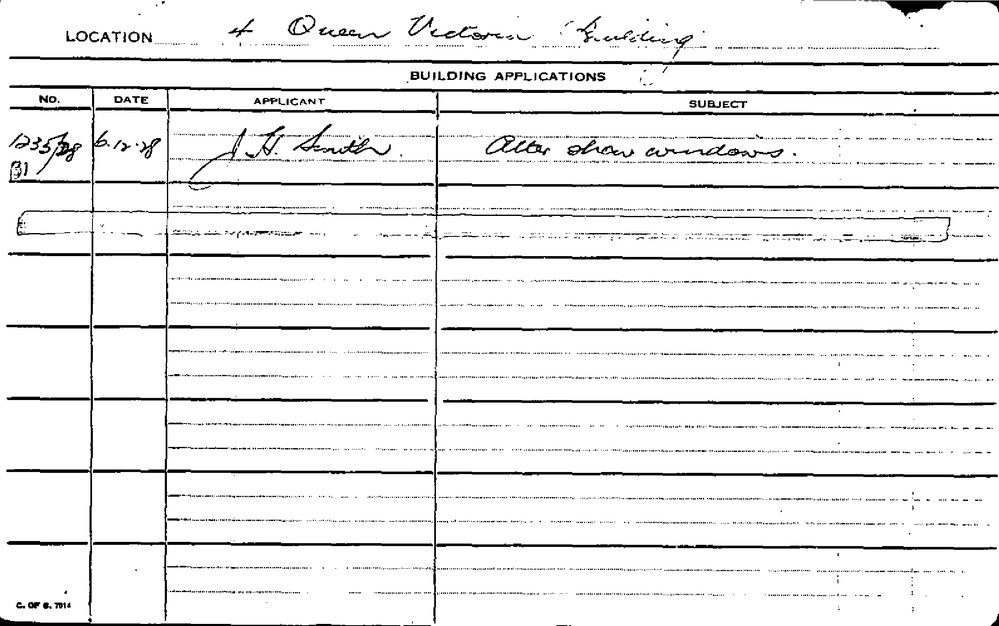 LOCATION 4 Queen Victoria Building
BUILDING APPLICATIONS
NO. DATE APPLICANT SUBJECT
1235/28 6.12.28 J H. Smith. Alter show windows.
C. OF S. 7914